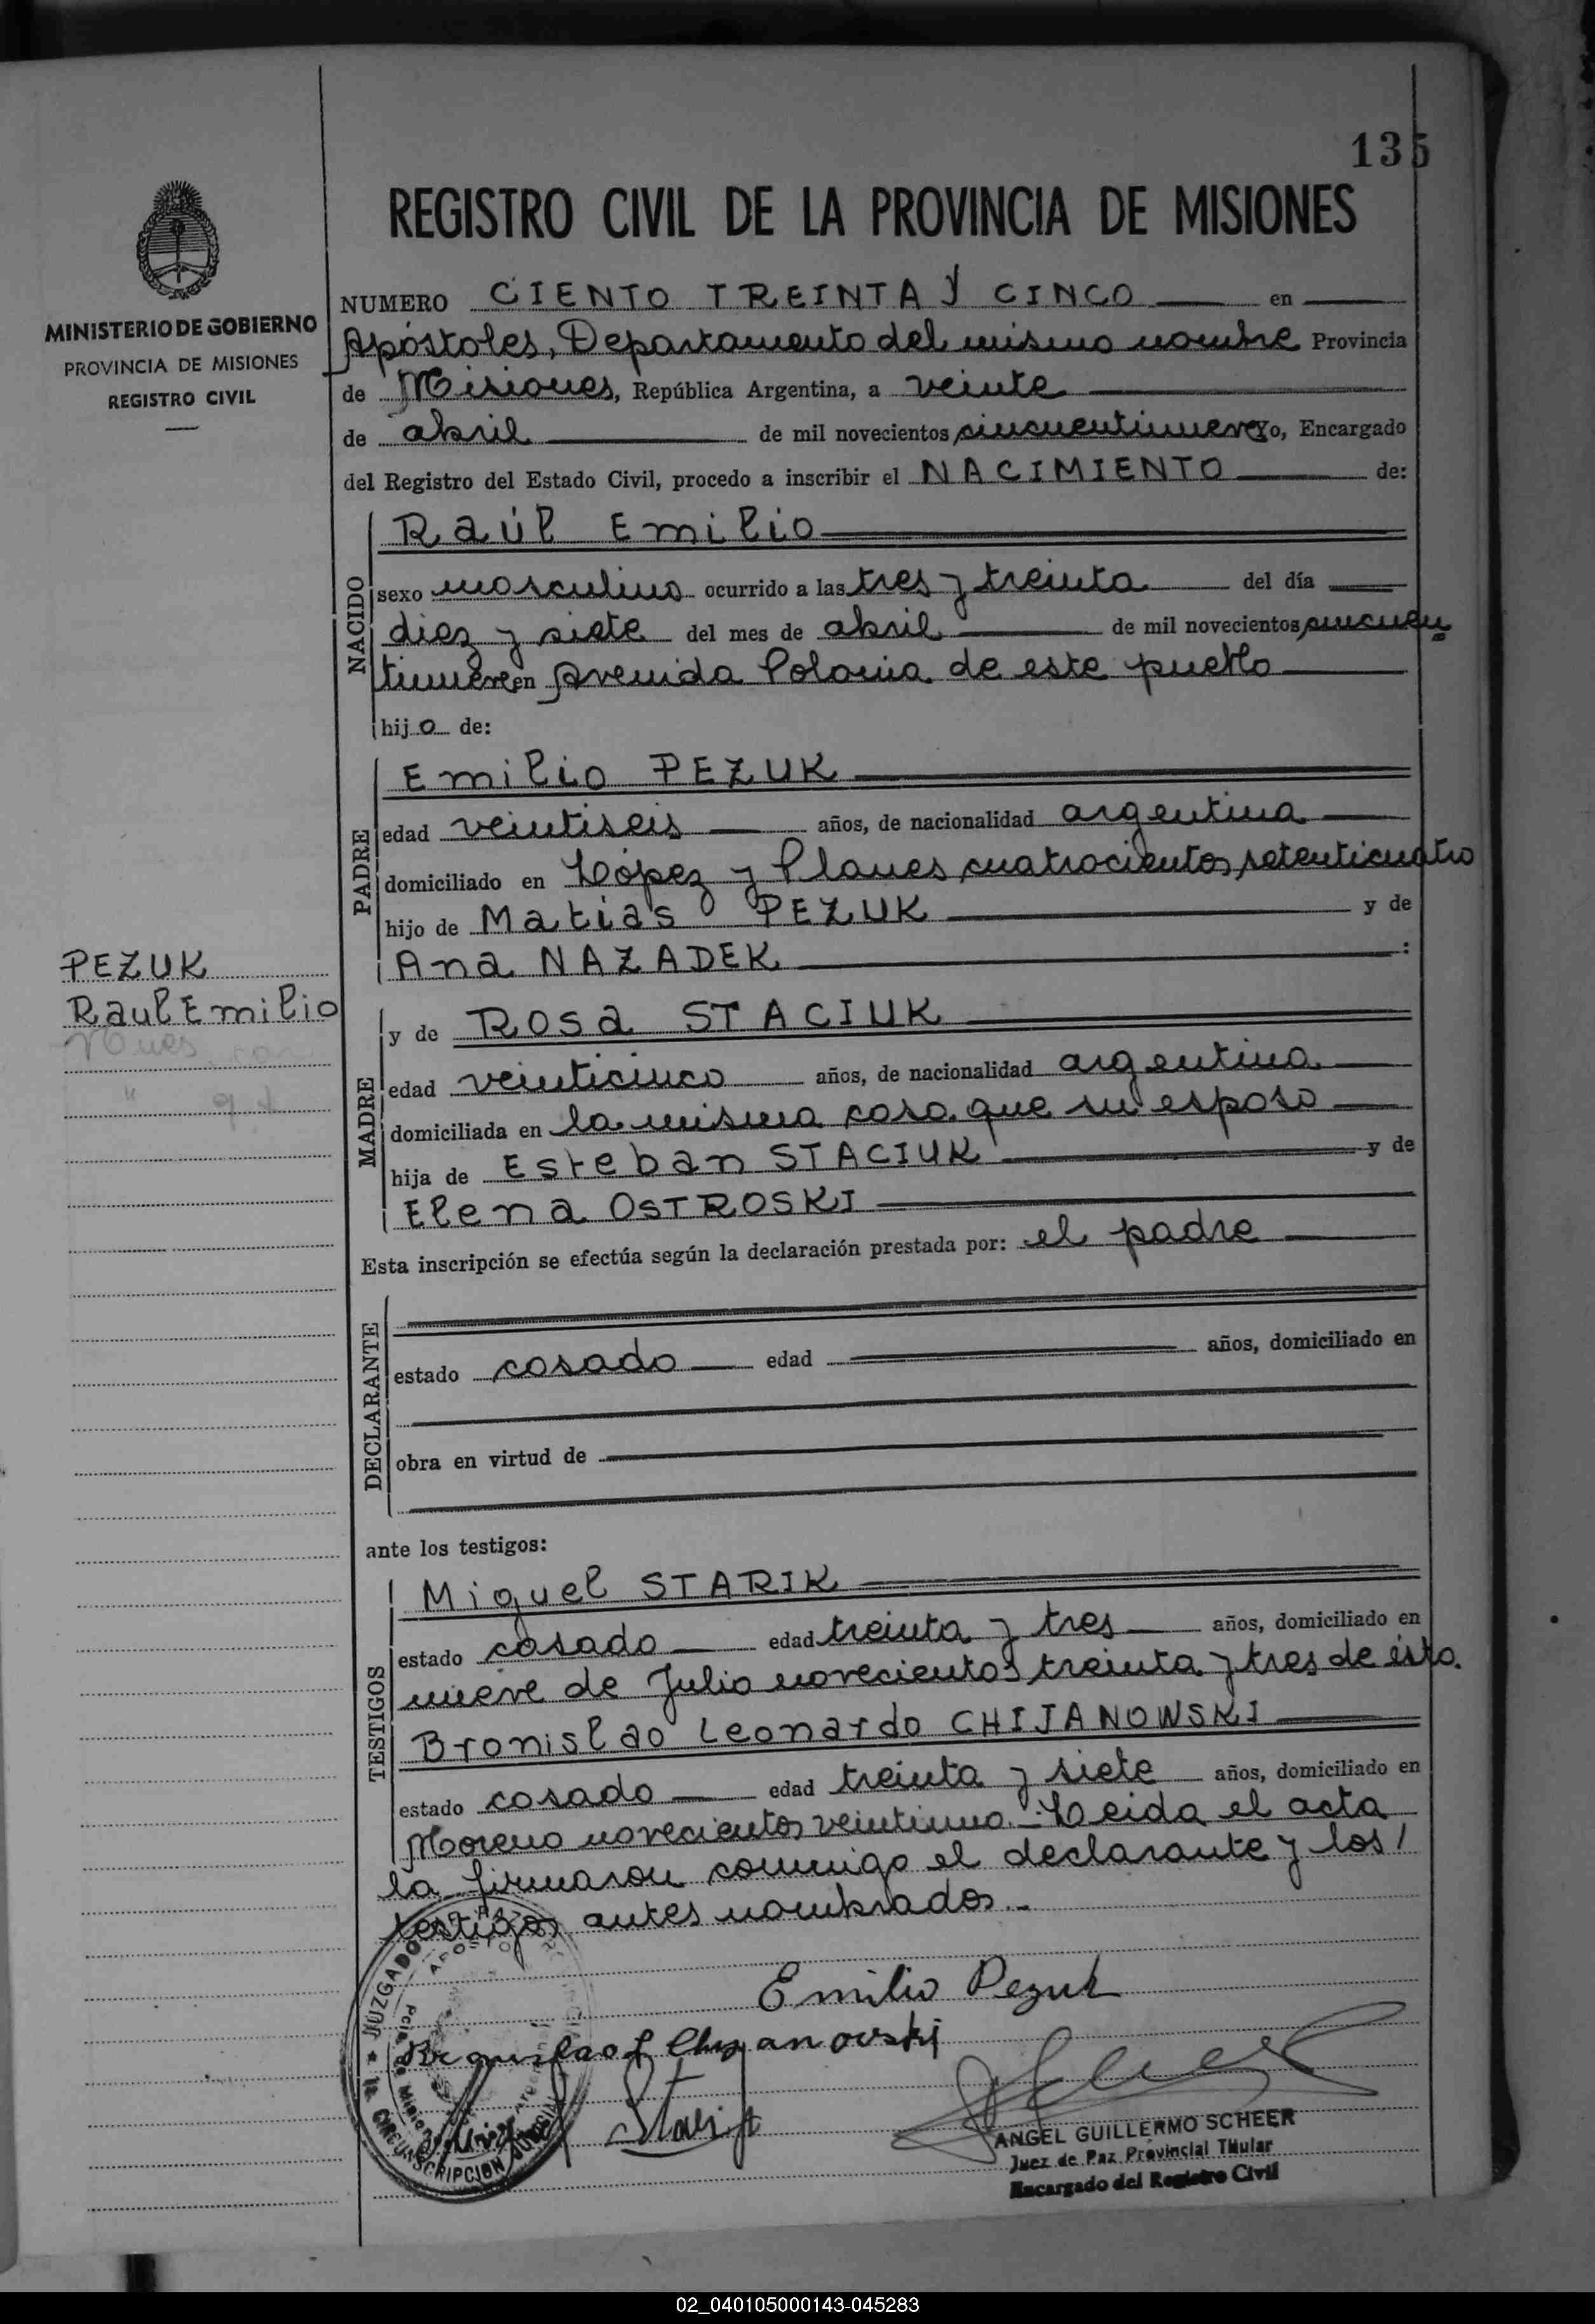 135
REGISTRO CIVIL DE LA PROVINCIA DE MISIONES
MINISTERIO DE GOBIERNO
PROVINCIA DE MISIONES
REGISTRO CIVIL
NUMERO CIENTO TREINTA Y CINCO en
Apóstoles, Departamento del mismo nombre Provincia
de Misiones, República Argentina, a veinte
de abril de mil novecientos cincuentinueve yo, Encargado
del Registro del Estado Civil, procedo a inscribir el NACIMIENTO de:
NACIDO
Raúl Emilio
sexo masculino ocurrido a las tres y treinta del día
diez y siete del mes de abril de mil novecientos cincuen
tinueve en Avenida Polonia de este pueblo
hijo de:
PADRE
Emilio PEZUK
edad veintiseis años, de nacionalidad argentina
domiciliado en López y Planes cuatrocientos setenticuatro
hijo de Matías PEZUK y de
Ana NAZADEK :
PEZUK
Raul Emilio
MADRE
y de Rosa STACIUK
edad veinticinco años, de nacionalidad argentina
domiciliada en la misma casa que su esposo
hija de Esteban STACIUK y de
Elena OSTROSKI
Esta inscripción se efectúa según la declaración prestada por: el padre
DECLARANTE
estado casado edad años, domiciliado en
obra en virtud de
ante los testigos:
TESTIGOS
Miguel STARIK
estado casado edad treinta y tres años, domiciliado en
nueve de Julio novecientos treinta y tres de ésta
Bronislao Leonardo CHIJANOWSKI
estado casado edad treinta y siete años, domiciliado en
Moreno novecientos veintiuno.- Leida el acta
la firmaron conmigo el declarante y los
testigos antes nombrados.-
Emilio Pezuk
JUZGADO
APOSTOLES
CIRCUNSCRIPCION JUDICIAL
ANGEL GUILLERMO SCHEER
Juez de Paz Provincial Titular
Encargado del Registro Civil
02_040105000143-045283